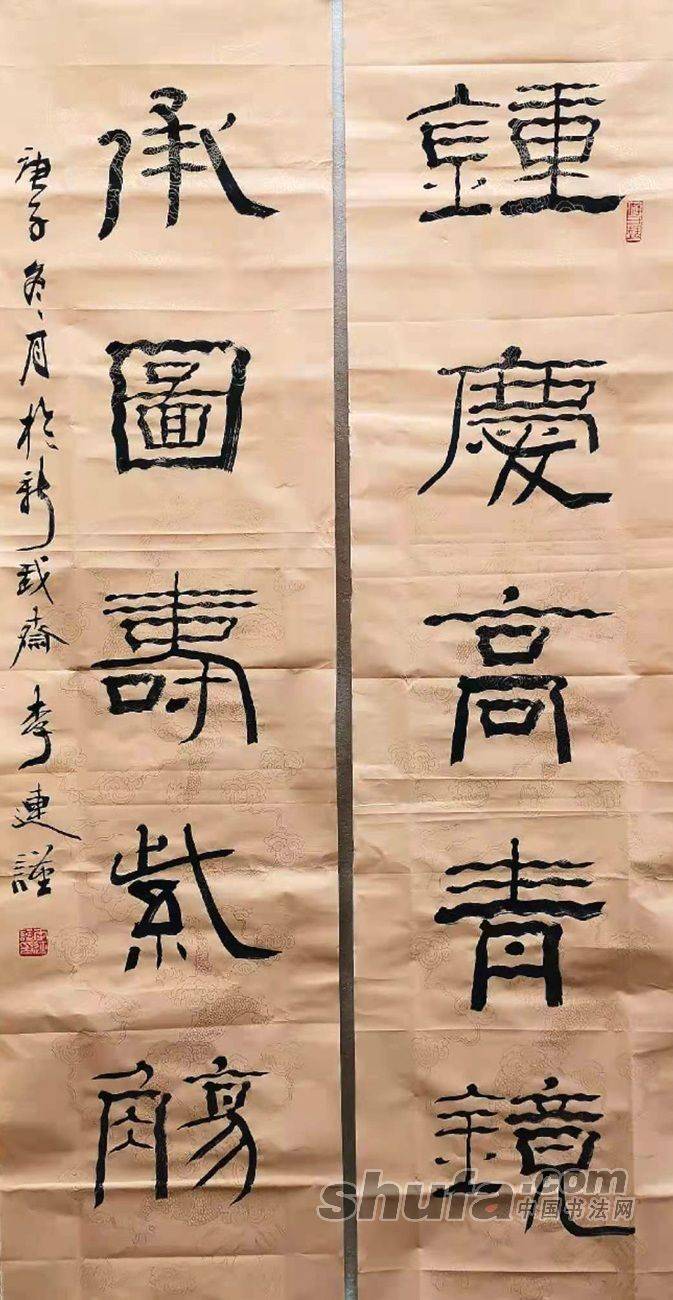 鍾慶高青鏡
承圖壽紫觴
庚子冬月於新我齋李連謹
shufa.com
中国书法网